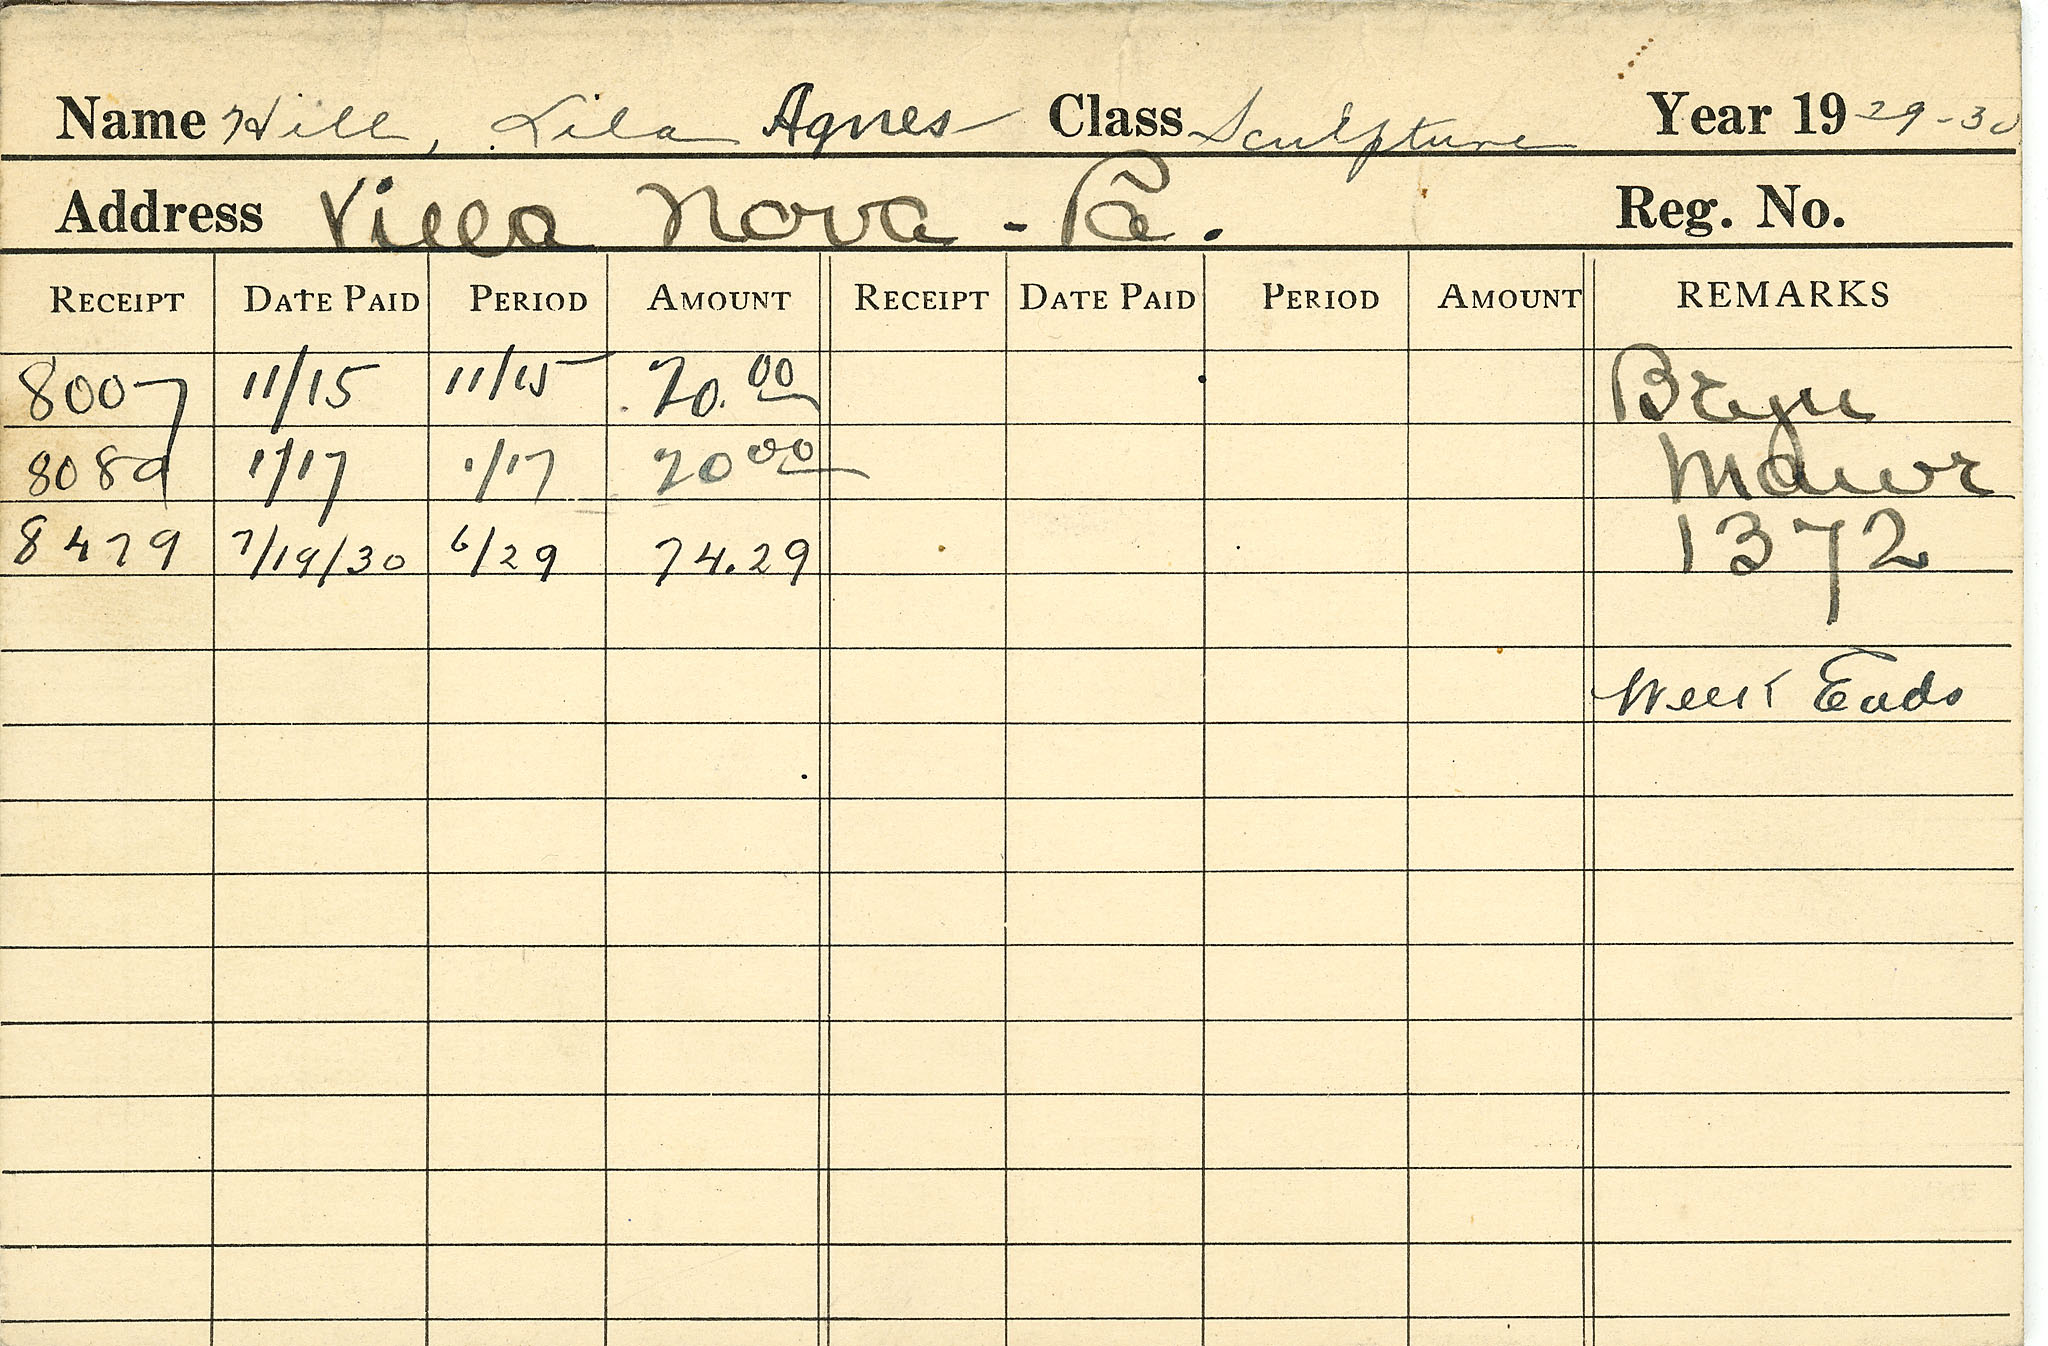 Name Hill, Lila Agnes Class Sculpture Year 19 29-30
Address Villa Nova - Pa. Reg. No.
RECEIPT DATE PAID PERIOD AMOUNT RECEIPT DATE PAID PERIOD AMOUNT REMARKS
8007 11/15 11/15 20.00 Bryn
8089 1/17 1/17 20 00 Mawr
8479 7/19/30 6/29 74.29 1372
Week Ends